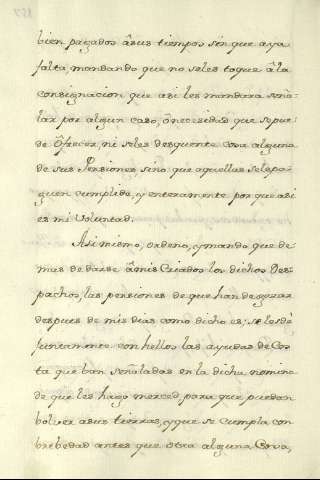 bien pagados â sus tiempos sin que aya
falta, mandando que no seles toque â la
consignacion que asi les mandara seña-
lar por algun caso, ô necesidad que se pue-
de ôfrecer, ni seles desquente cosa alguna
de sus Pensiones sino que aquellas seles pa-
guen cumplida, y enteramente por que asi
es mi Voluntad.
Asimismo, ordeno, y mando que de-
mas de darse â mis Criados los dichos Des-
pachos, las pensiones de que han de gozar
despues de mis dias como dicho es; se les dè
juntamente con hellos las ayudas de Cos-
ta que ban señaladas en la dicha nomina
de que les hago merced, para que puedan
bolver a sus tierras, y que se cumpla con
brebedad antes que otra alguna Cosa,